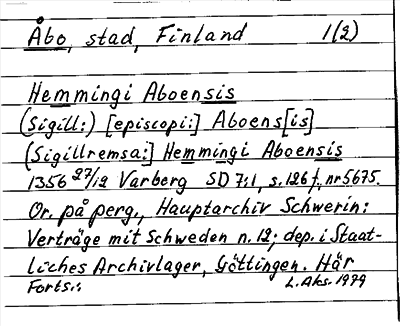 Åbo, stad, Finland 1(2)
Hemmingi Aboensis
(Sigill:) [episcopi:] Aboens[is]
(Sigillremsa:] Hemmingi Aboensis
1356 27/12 Varberg SD 7:1, s. 126 f, nr 5675.
Or. på perg., Hauptarchiv Schwerin:
Verträge mit Schweden n. 12; dep. i Staat-
liches Archivlager, Göttingen. Här
Forts.: L. Aks. 1979